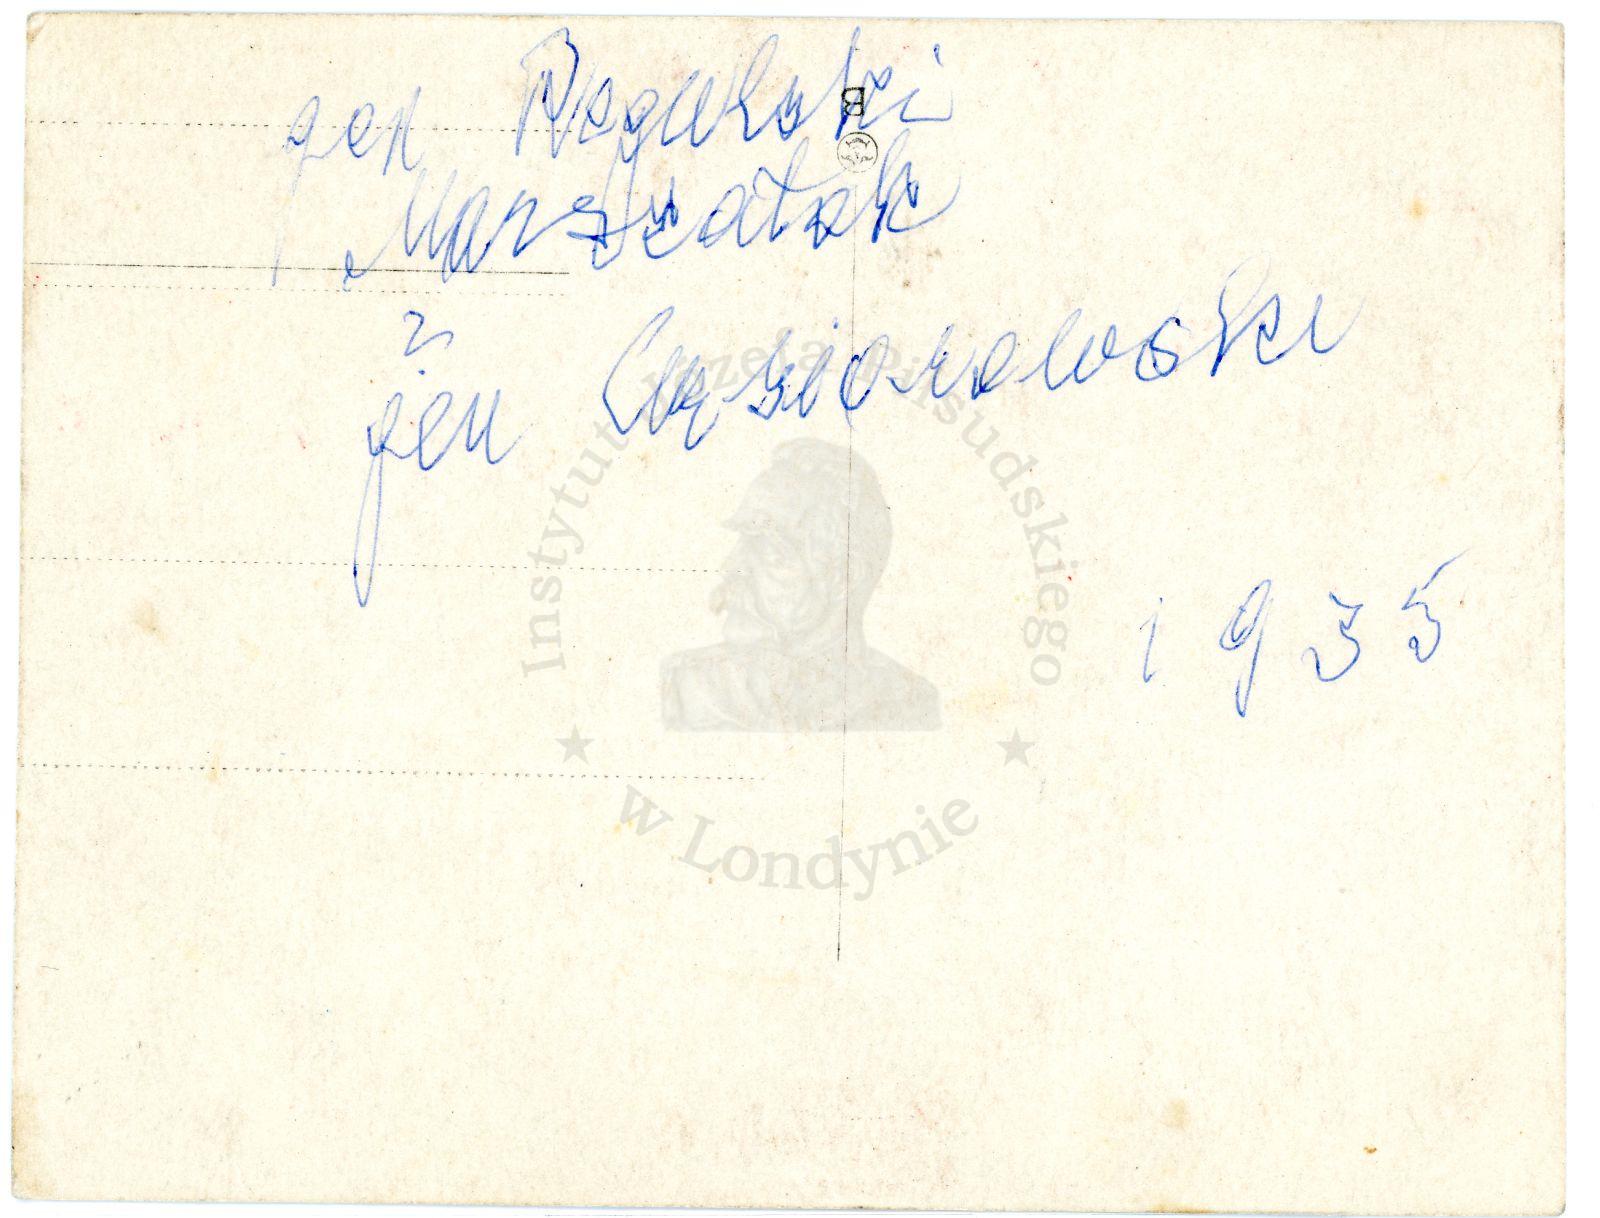 gen Regulski
Marszałek
gen Gąsiorowski
1935
B
Instytut Józefa Piłsudskiego
w Londynie